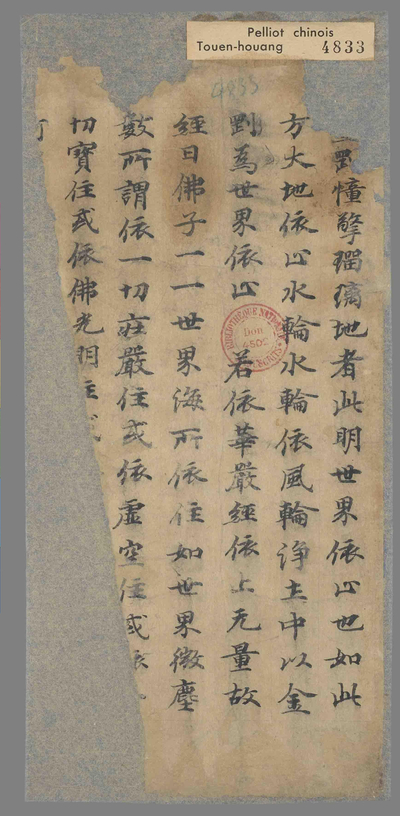 Pelliot chinois
Touen-houang 4833
4833
剛幢擎瑠璃地者此明世界依止也如此
方大地依止水輪水輪依風輪淨土中以金
剛為世界依止若依華嚴經依止无量故
經曰佛子一一世界海所依住如世界微塵
數所謂依一切莊嚴住或依虛空住或依
切寶住或依佛光明住或
Don
4502